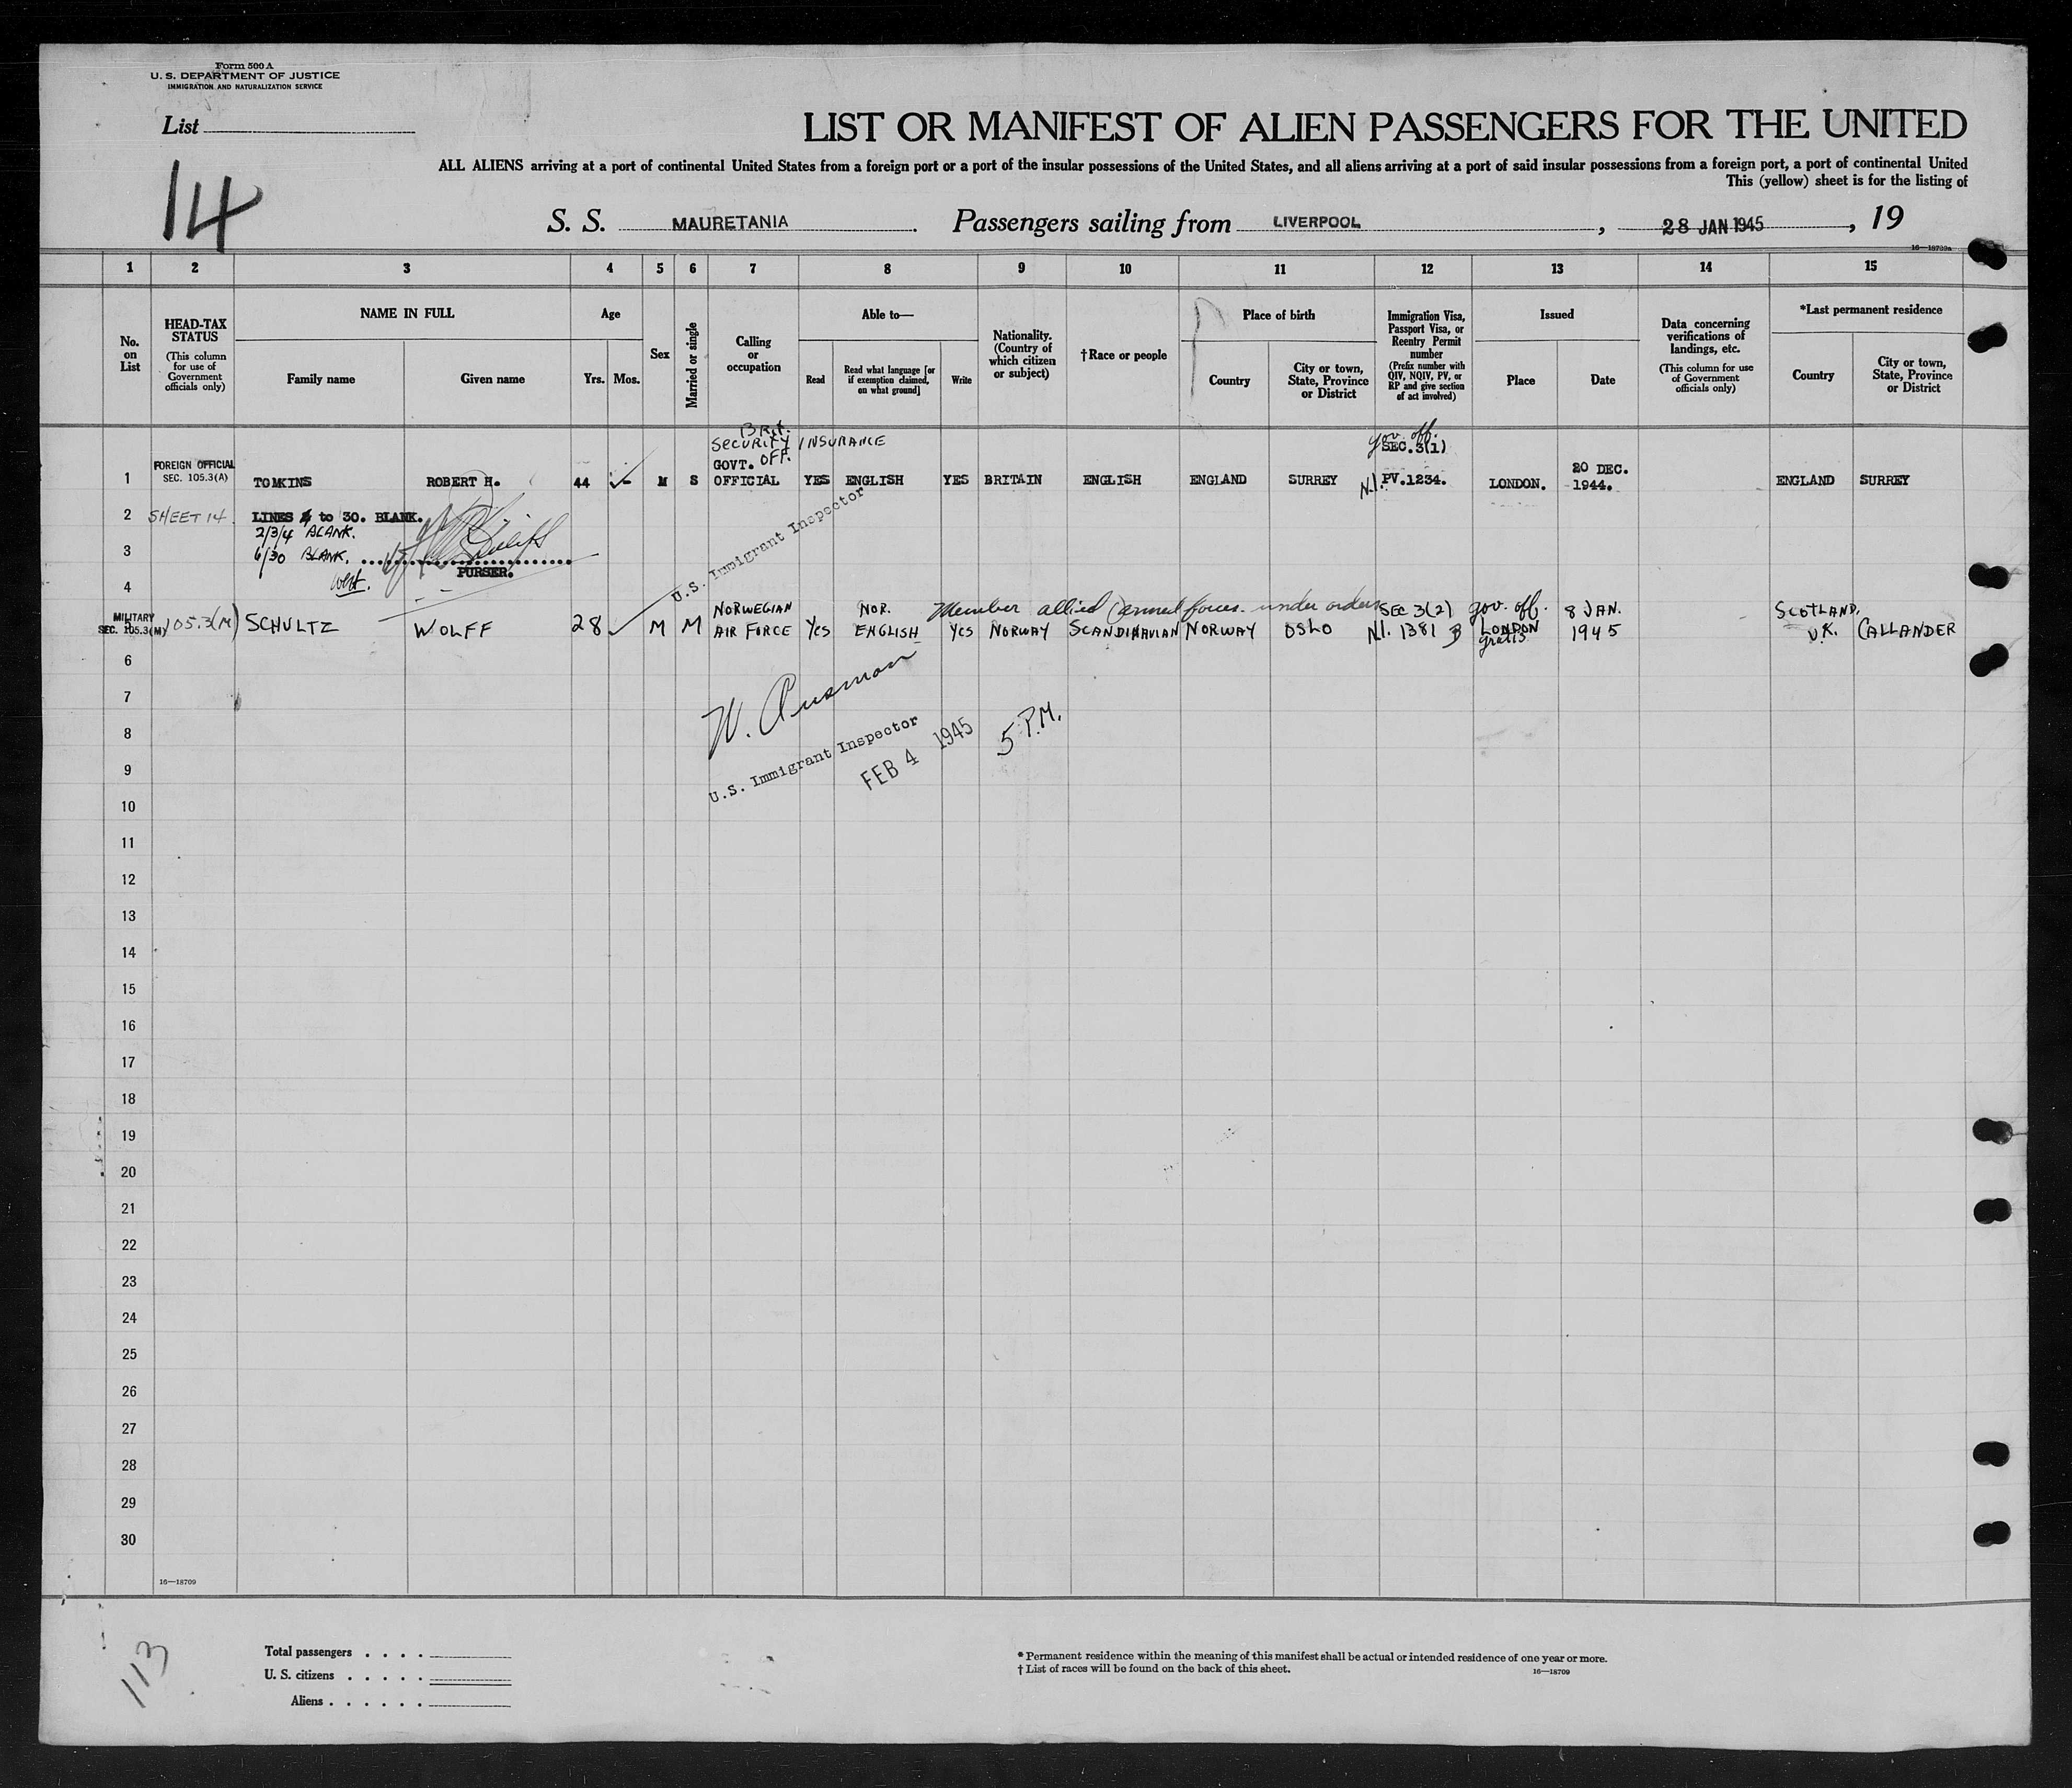 Form 500 A
U. S. DEPARTMENT OF JUSTICE
IMMIGRATION AND NATURALIZATION SERVICE
List
14
LIST OR MANIFEST OF ALIEN PASSENGERS FOR THE UNITED
ALL ALIENS arriving at a port of continental United States from a foreign port or a port of the insular possessions of the United States, and all aliens arriving at a port of said insular possessions from a foreign port, a port of continental United
This (yellow) sheet is for the listing of
S. S. MAURETANIA Passengers sailing from LIVERPOOL , 28 JAN 1945 , 19
16—18709a
1 2 3 4 5 6 7 8 9 10 11 12 13 14 15
No. on List
HEAD-TAX STATUS
(This column for use of Government officials only)
NAME IN FULL
Family name
Given name
Age
Yrs. Mos.
Sex
Married or single
Calling or occupation
Able to—
Read
Read what language [or if exemption claimed, on what ground]
Write
Nationality. (Country of which citizen or subject)
†Race or people
Place of birth
Country
City or town, State, Province or District
Immigration Visa, Passport Visa, or Reentry Permit number
(Prefix number with QIV, NQIV, PV, or RP and give section of act involved)
Issued
Place
Date
Data concerning verifications of landings, etc.
(This column for use of Government officials only)
*Last permanent residence
Country
City or town, State, Province or District
Brit.
SECURITY INSURANCE gov. off.
GOVT. OFF. SEC.3(1)
FOREIGN OFFICIAL
SEC. 105.3(A)
20 DEC.
1 TOMKINS ROBERT H. 44 M S OFFICIAL YES ENGLISH YES BRITAIN ENGLISH ENGLAND SURREY N.I. PV.1234. LONDON. 1944. ENGLAND SURREY
2 SHEET 14. LINES to 30. BLANK.
2/3/4 BLANK.
3 6/30 BLANK.
PURSER.
West.
U.S. Immigrant Inspector
4
MILITARY NORWEGIAN NOR. Member allied armed forces. under orders SEC 3(2) gov. off. 8 JAN. SCOTLAND,
SEC. 105.3(M) 105.3(M) SCHULTZ WOLFF 28 M M AIR FORCE Yes ENGLISH Yes NORWAY SCANDINAVIAN NORWAY OSLO N.I. 1381 B LONDON 1945 U.K. CALLANDER
gratis
6
7
8
9
W.
U.S. Immigrant Inspector
FEB 4 1945 5 P.M.
10
11
12
13
14
15
16
17
18
19
20
21
22
23
24
25
26
27
28
29
30
16—18709
113
Total passengers . . . .
U. S. citizens . . . . .
Aliens . . . . . .
* Permanent residence within the meaning of this manifest shall be actual or intended residence of one year or more.
† List of races will be found on the back of this sheet.
16—18709